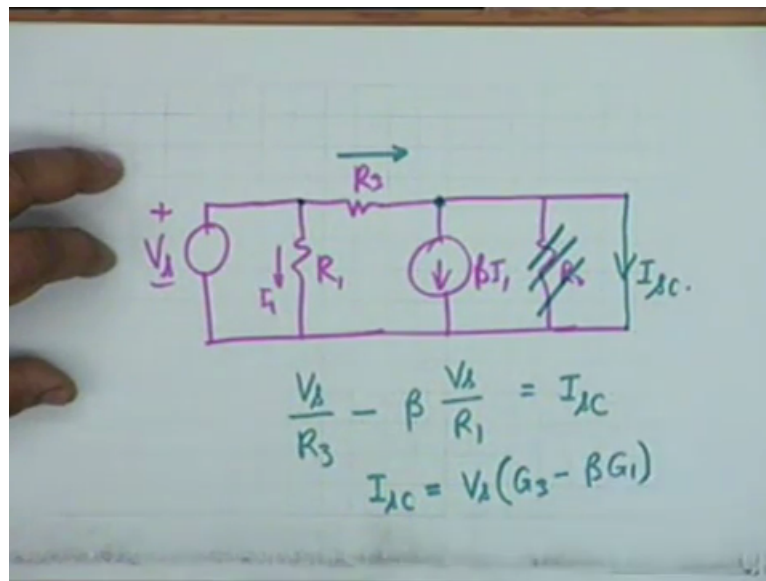 R3
+
Vs
-
I1
R1
βI1
Isc.
Vs/R3 - β Vs/R1 = Isc
Isc = Vs(G3 - βG1)